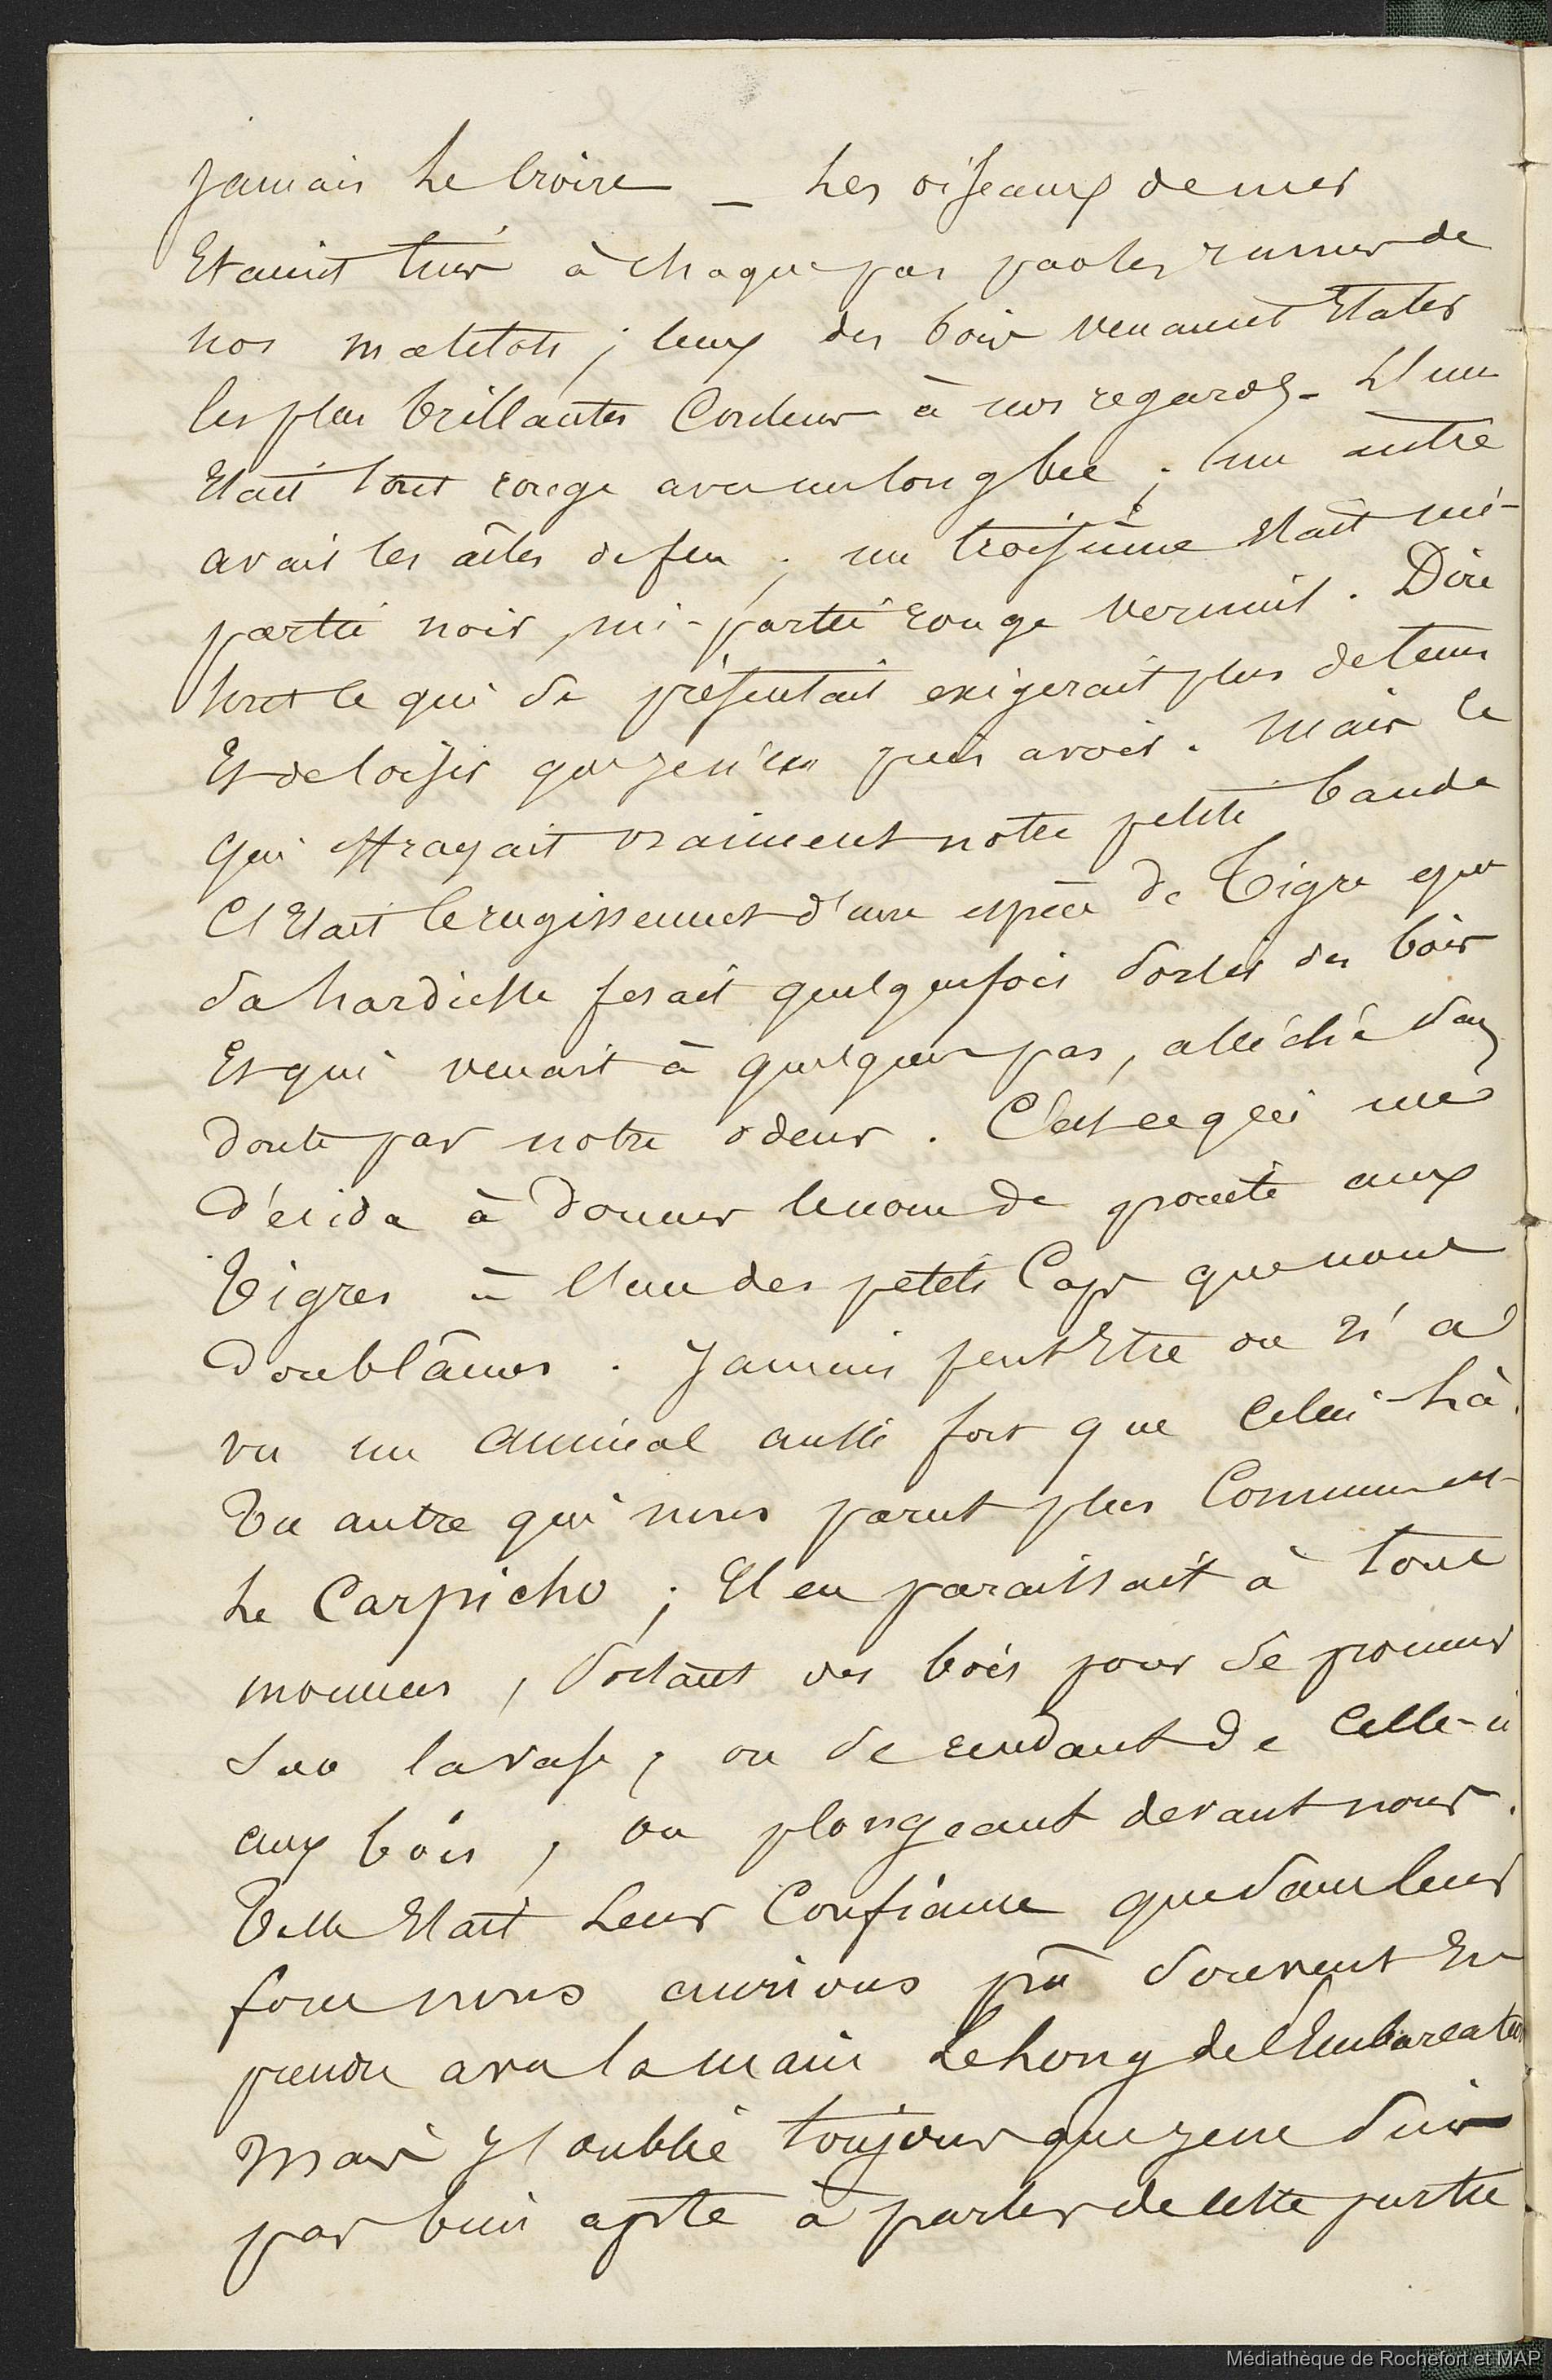 Jamais Le Croire _ Les oiseaux de mer
Etaient tués à chaque pas par les rames de
nos matelots ; ceux des bois venaient Etaler
les plus brillantes Couleurs à nos regards _ L'un
Etait tout rouge avec un long bec ; un autre
avait les aîles de feu ; un troisième Etait mi-
partie noir, mi-partie rouge vermeil . Dire
tout ce qui se présentait exigerait plus de tems
Et de loisir que je n'en puis avoir . Mais ce
qui effrayait vraiment notre petite bande
C'Etait le rugissement d'une espèce de Tigre que
sa hardiesse fesait quelquefois sortir des bois
Et qui venait à quelques pas, alléché sans
doute par notre odeur . C'est ce qui me
décida à donner le nom de pointe aux
Tigres à l'un des petits Caps que nous
doublâmes . Jamais peut Etre on n'a
vu un animal aussi fort que celui-Là.
Un autre qui nous parut plus Commun est
Le Carpicho ; Il en paraissait à tous
momens, sortant des bois pour se promener
sur la vase, ou se rendant de celle-ci
aux bois, ou plongeant devant nous .
Telle Etait Leur Confiance que dans leur
nous aurions pû souvent En
prendre avec la main Le Long de l'Embarcation
Mais J'oublie toujours que je ne suis
pas bien apte à parler de cette partie.
Médiathèque de Rochefort et MAP